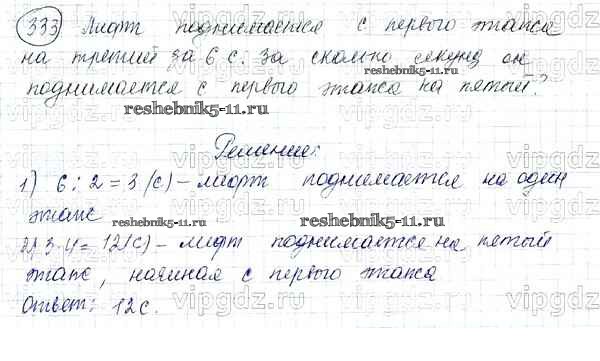 333 Лифт поднимается с первого этажа
на третий за 6 с. За сколько секунд он
поднимается с первого этажа на пятый?
reshebnik5-11.ru
reshebnik5-11.ru
Решение:
1) 6 : 2 = 3 (с) – лифт поднимается на один
этаж
reshebnik5-11.ru
reshebnik5-11.ru
2) 3·4 = 12 (с) – лифт поднимается на пятый
этаж, начиная с первого этажа
Ответ: 12 с.
vipgdz.ru vipgdz.ru vipgdz.ru vipgdz.ru